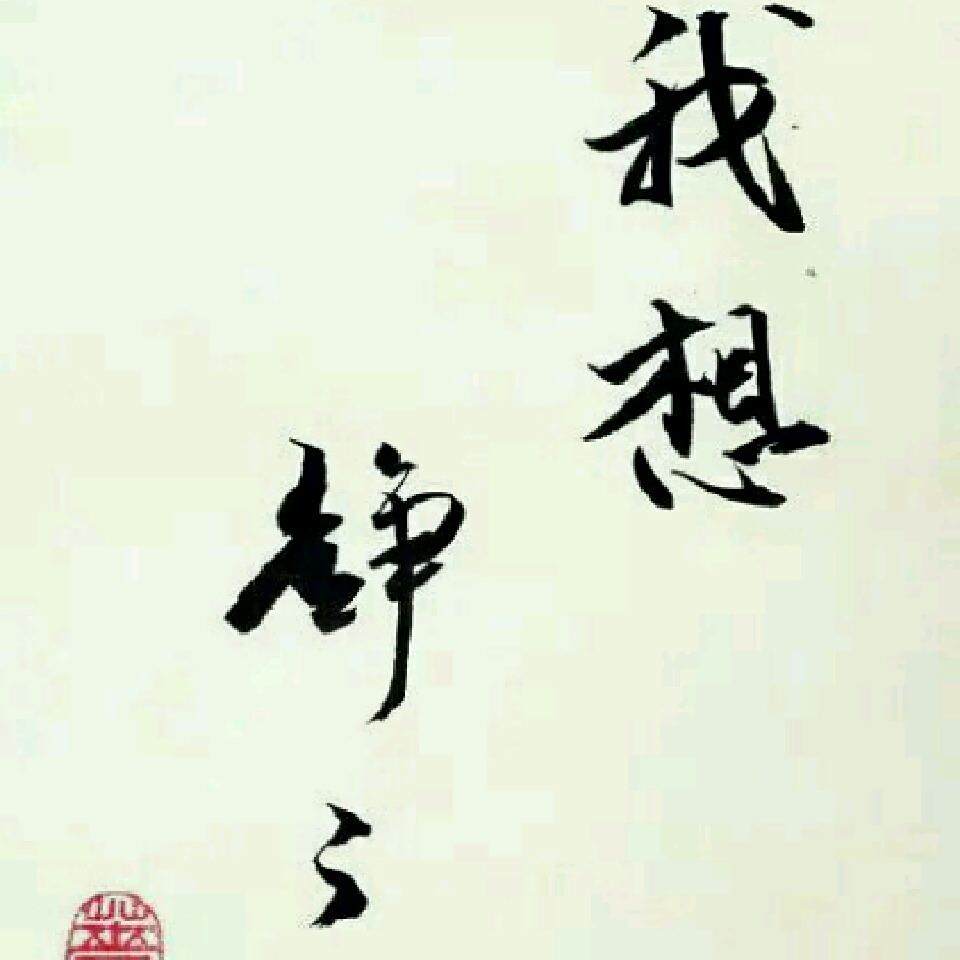 我想
静々